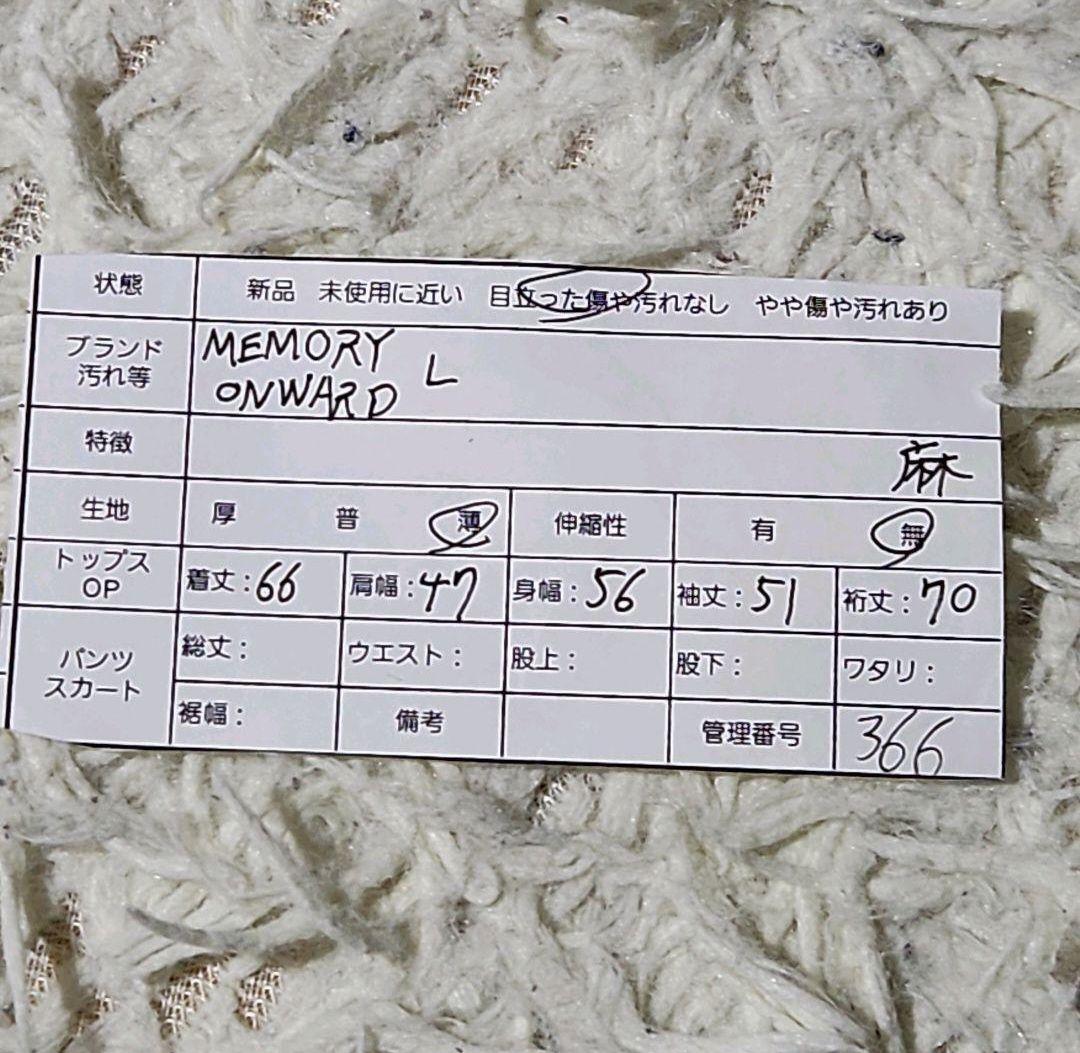 状態 新品 未使用に近い 目立った傷や汚れなし やや傷や汚れあり
ブランド
汚れ等
MEMORY
ONWARD
L
特徴 麻
生地 厚 普 薄 伸縮性 有 無
トップス
OP
着丈:66 肩幅:47 身幅:56 袖丈:51 裄丈:70
パンツ
スカート
総丈: ウエスト: 股上: 股下: ワタリ:
裾幅: 備考 管理番号 366